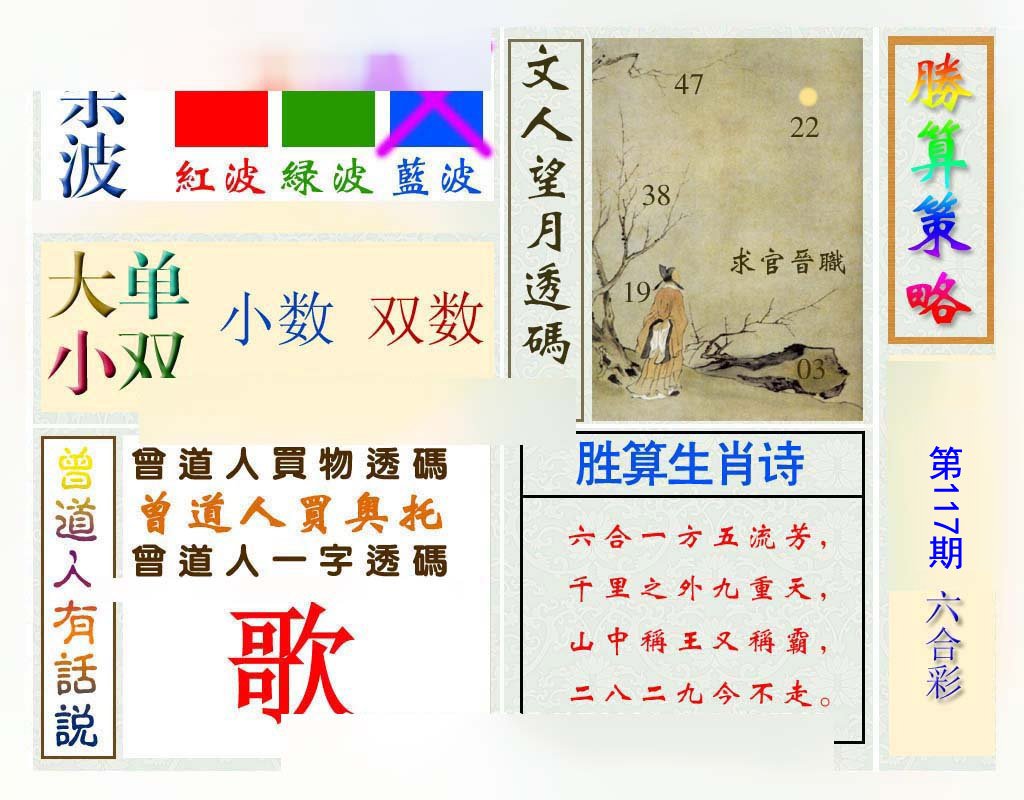 波
紅波 綠波 藍波
大单
小双
小数 双数
文人望月透碼
47
22
38
求官晉職
19
03
勝算策略
曾道人有話説
曾道人買物透碼
曾道人買奥托
曾道人一字透碼
歌
胜算生肖诗
六合一方五流芳，
千里之外九重天，
山中稱王又稱霸，
二八二九今不走。
第117期
六合彩